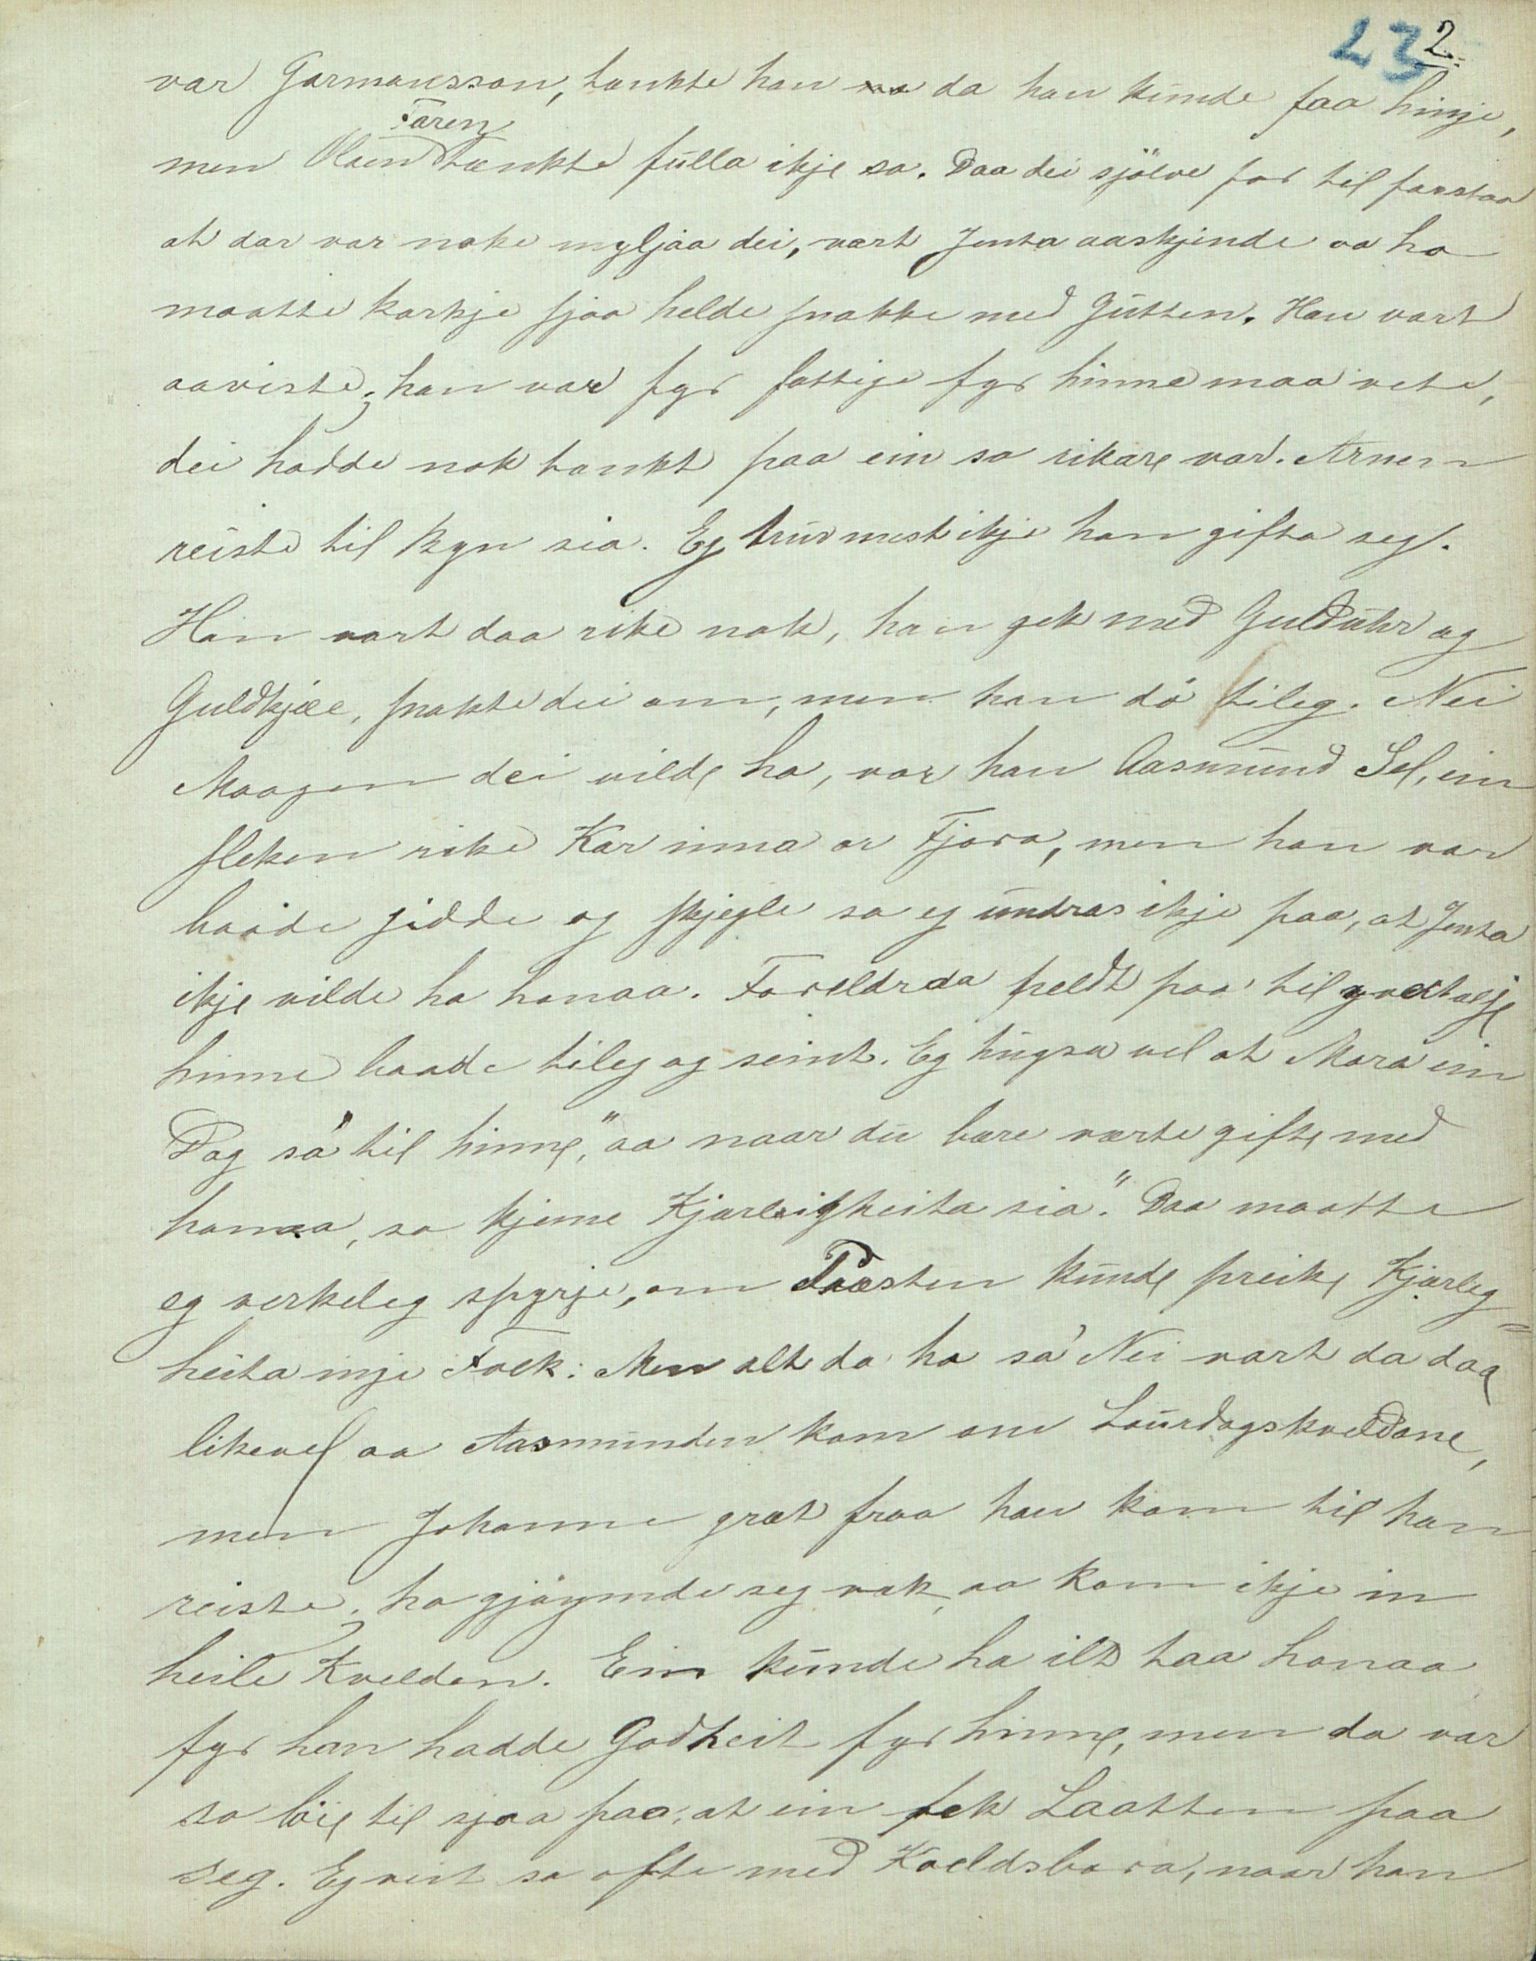 23 2.
var Garmansson, tænkte han da han kunde faa hinje,
Faren
men Olaen tænkte fulla ikje so. Daa dei sjölve for til forstaa
at dar var noke myljaa dei, vart Jenta aaskjende aa ho
maatte korkje sjaa helde snakke med Gutten. Han vart
aaviste, han var fyr fattige fyr hinne maa vete,
dei hadde nok tænkt paa ein so rikare var. Arnen
reiste til Byn sia. Eg trur mest ikje han gifta seg.
Han vart daa rike nok, han gek med Guldúhr og
Guldkjæe, snakte dei om, men han dö tileg. Nei
Maagen dei vilde ha, var han Aasmund Sel, ein
sleken rike Kar inna or Fjora, men han var
baade jidde og skjegle so eg undras ikje paa, at Jenta
ikje vilde ha honaa. Foreldrda heldt paa til yvertalje
hinne baade tileg og seint. Eg hugsa vel at Mora ein
Dag sa' til hinne, "aa naar du bare værte gifte med
honaa, so kjeme Kjærleigheita sia". Daa maatte
eg verkeleg spyrje, om Præsten kunde preike Kjærleg=
heita inje Folk: Men alt da ho sa' Nei vart da daa
likevel aa Aasmunden kom om Laurdagskveldane,
men Johanne græt fraa han kom til han
reiste, ho gjöymde seg væk, aa kom ikje in
heile Kvelden. Ein kunde ha ilt taa honaa
fyr han hadde Godheit fyr hinne, men da var
so löie til sjaa paa, at ein fek Laatten paa
seg. Eg veit so ofte med Kveldsbora, naar han